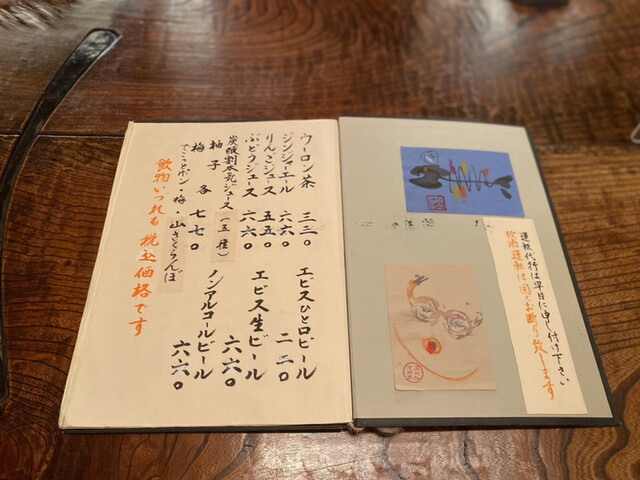 ウーロン茶 三三〇
ジンジャーエール 六六〇
りんごジュース 五五〇
ぶどうジュース 六六〇
柚子
梅 各 七七〇
エビスひと口ビール 二二〇
エビス生ビール 六六〇
ノンアルコールビール 六六〇
飲物いづれも税込価格です
運転代行は早目に申し付け下さい
飲酒運転は固くお断り致します